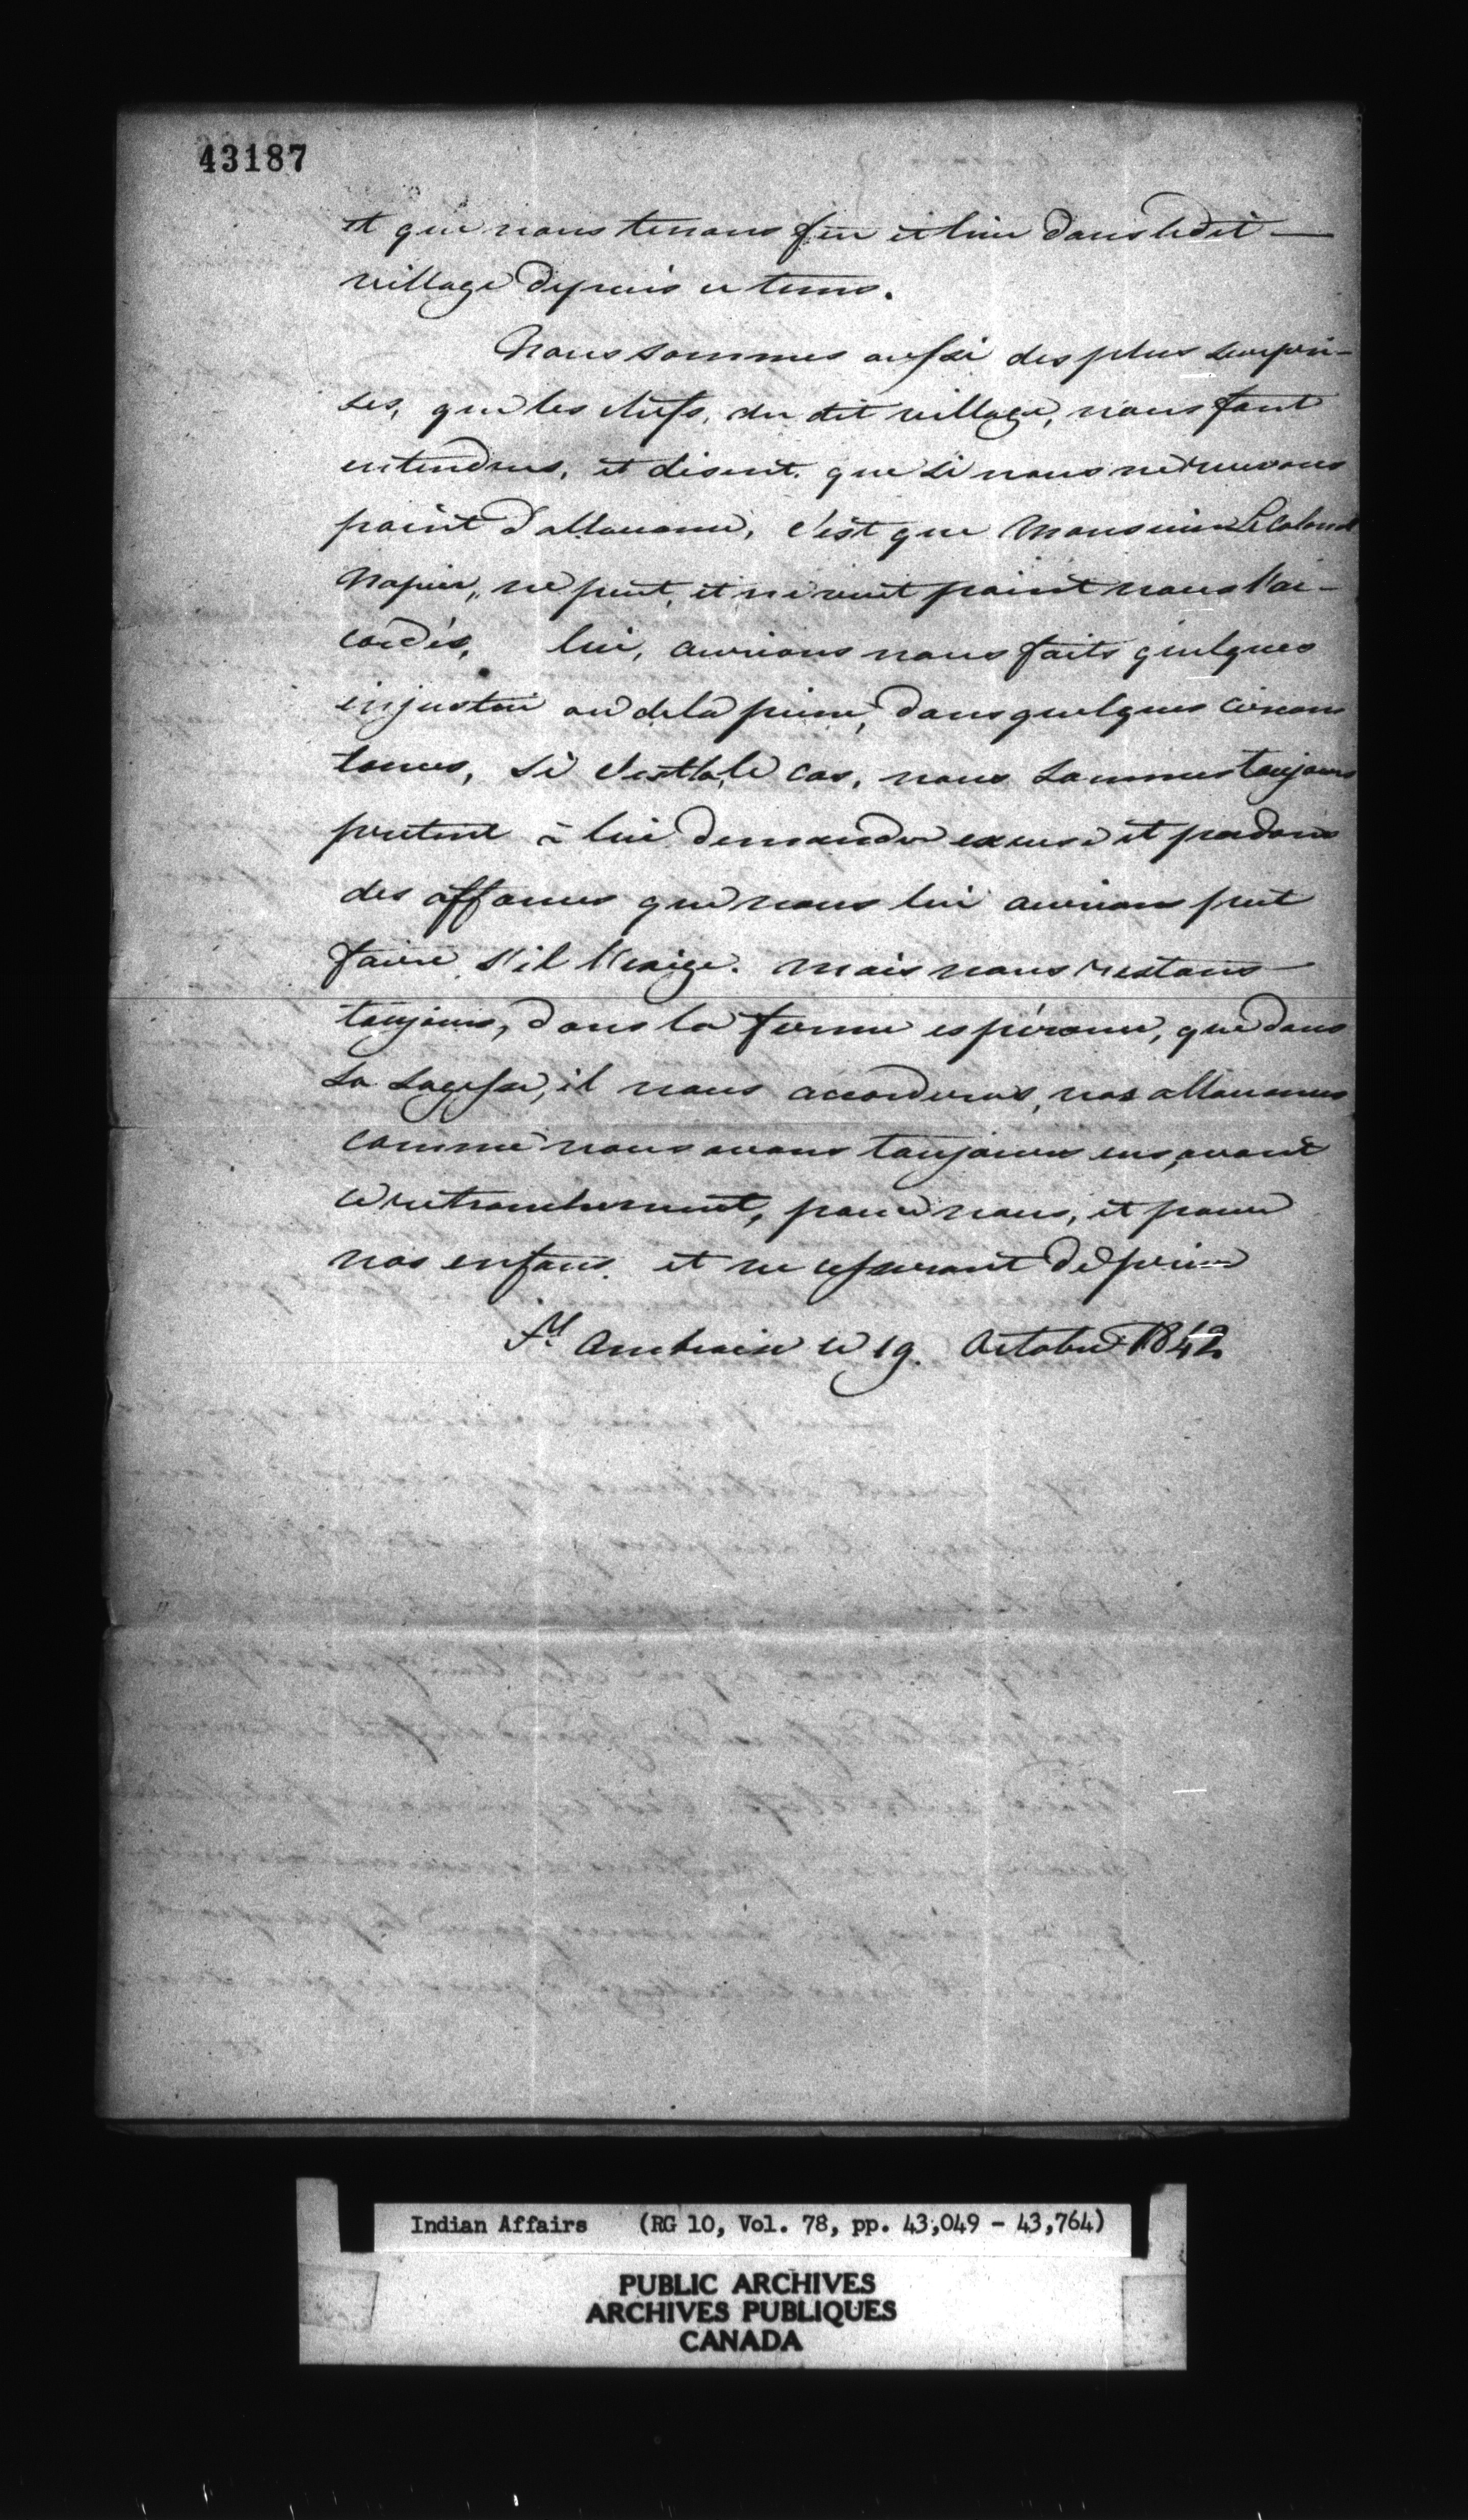 43187
et que nous tenons feu et lieu dans ledit —
village depuis ce tems.
Nous sommes aussi des plus surpri-
ses, que les chefs, du dit village, nous font
entendres, et disent. que si nous ne recevons
point d'allouance, c'est que Monsieur Le Colonel
Napier, ne peut, et ne veut point nous l'ac-
cordés, lui, aurions nous faits quelques
injustice ou de la peine, dans quelques circons
tances, si c'est la, le cas, nous sommes toujours
à lui demander excuse et pardons
des offances que nous lui aurions put
faire s'il l'exige. mais nous restons
toujours, dans la ferme espérance, que dans
sa sagesse, il nous accorderas, nos allouances
comme nous avons toujours eus, avant
ce retranchement, pour nous, et pour
nos enfans. et ne cesseront de prier
St. Ambroise le 19. Octobre 1842
Indian Affairs (RG 10, Vol. 78, pp. 43,049 - 43,764)
PUBLIC ARCHIVES
ARCHIVES PUBLIQUES
CANADA